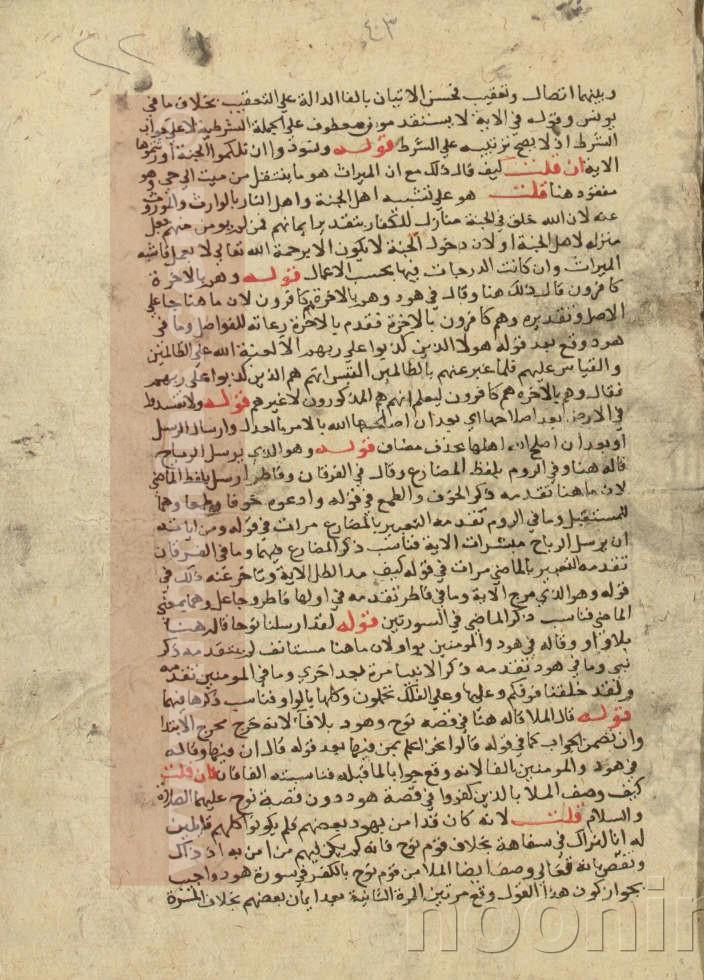 ٤٠٣
٢٢
وبينهما اتصال وتعقيب فحسن الاتيان بالفا الدالة على التعقيب بخلاف ما في
يونس وقوله في الاية لا يستقدمون معطوف على الجملة الشرطية لا على جواب
الشرط اذ لا يصح ترتبه على الشرط قوله ونودوا ان تلكم الجنة اورثتموها
الاية ان قلت كيف قال ذلك مع ان الميراث هو ما ينتقل من ميت الى حي وهو
مفقود هنا قلت هو على تشبيه اهل الجنة واهل النار بالوارث والموروث
عنه لان الله خلق في الجنة منازل للكفار بتقدير ايمانهم فمن لم يومن منهم جعل
منزله لاهل الجنة او لان دخول الجنة لا يكون الا برحمة الله تعالى لا بعمل فاشبه
الميراث وان كانت الدرجات فيها بحسب الاعمال قوله وهم بالاخرة
كافرون قال ذلك هنا وقال في هود وهم بالاخرة هم كافرون لان ما هنا جا على
الاصل وتقديره وهم كافرون بالاخرة فقدم بالاخرة رعاية للفواصل وما في
هود وقع بعد قوله هولا الذين كذبوا على ربهم الا لعنة الله على الظالمين
والقياس عليهم فلما عبر عنهم بالظالمين التبس انهم هم الذين كذبوا على ربهم
فقال وهم بالاخرة هم كافرون ليعلم انهم هم المذكورون لا غيرهم قوله ولا تفسدوا
في الارض بعد اصلاحها اي بعد ان اصلحها الله بالامر بالعدل وارسال الرسل
او بعد ان اصلح الله اهلها بحذف مضاف قوله وهو الذي يرسل الرياح
قاله هنا وفي الروم بلفظ المضارع وقال في الفرقان وفاطر ارسل بلفظ الماضي
لان ما هنا تقدمه ذكر الخوف والطمع في قوله وادعوه خوفا وطمعا وهما
للمستقبل وما في الروم تقدمه التعبير بالمضارع مرات في قوله ومن اياته
ان يرسل الرياح مبشرات الاية فناسب ذكر المضارع فيهما وما في الفرقان
تقدمه التعبير بالماضي مرات في قوله كيف مد الظل الاية وتاخر عنه ذلك في
قوله وهو الذي مرج الاية وما في فاطر تقدمه في اولها فاطر وجاعل وهما بمعنى
الماضي فناسب ذكر الماضي في السورتين قوله لقد ارسلنا نوحا قاله هنا
بلا واو وقاله في هود والمومنين بواو لان ما هنا مستانف لم يتقدمه ذكر
نبي وما في هود تقدمه ذكر الانبيا مرة بعد اخرى وما في المومنين تقدمه
ولقد خلقنا فوقكم وعليها وعلى الفلك تحملون وكلها بالواو فناسب ذكرها فيهما
قوله قال الملا قاله هنا في قصة نوح وهود بلا فا لانه خرج مخرج الابتدا
وان تضمن الجواب كما في قوله قالوا نحن اعلم بمن فيها بعد قوله قال ان فيها وقاله
في هود والمومنين بالفا لانه وقع جوابا لما قبله فناسبته الفا فان قلت
كيف وصف الملا بالذين كفروا في قصة هود دون قصة نوح عليهما الصلاة
والسلام قلت لانه كان قد امن بهود بعضهم فلم يكونوا كلهم قايلين
له انا لنراك في سفاهة بخلاف قوم نوح فانه لم يكن فيهم من امن به اذ ذاك
ونقض بانه تعالى وصف ايضا الملا من قوم نوح بالكفر في سورة هود واجيب
بجواز كون هذا القول وقع مرتين المرة الثانية بعد ايمان بعضهم بخلاف المرة